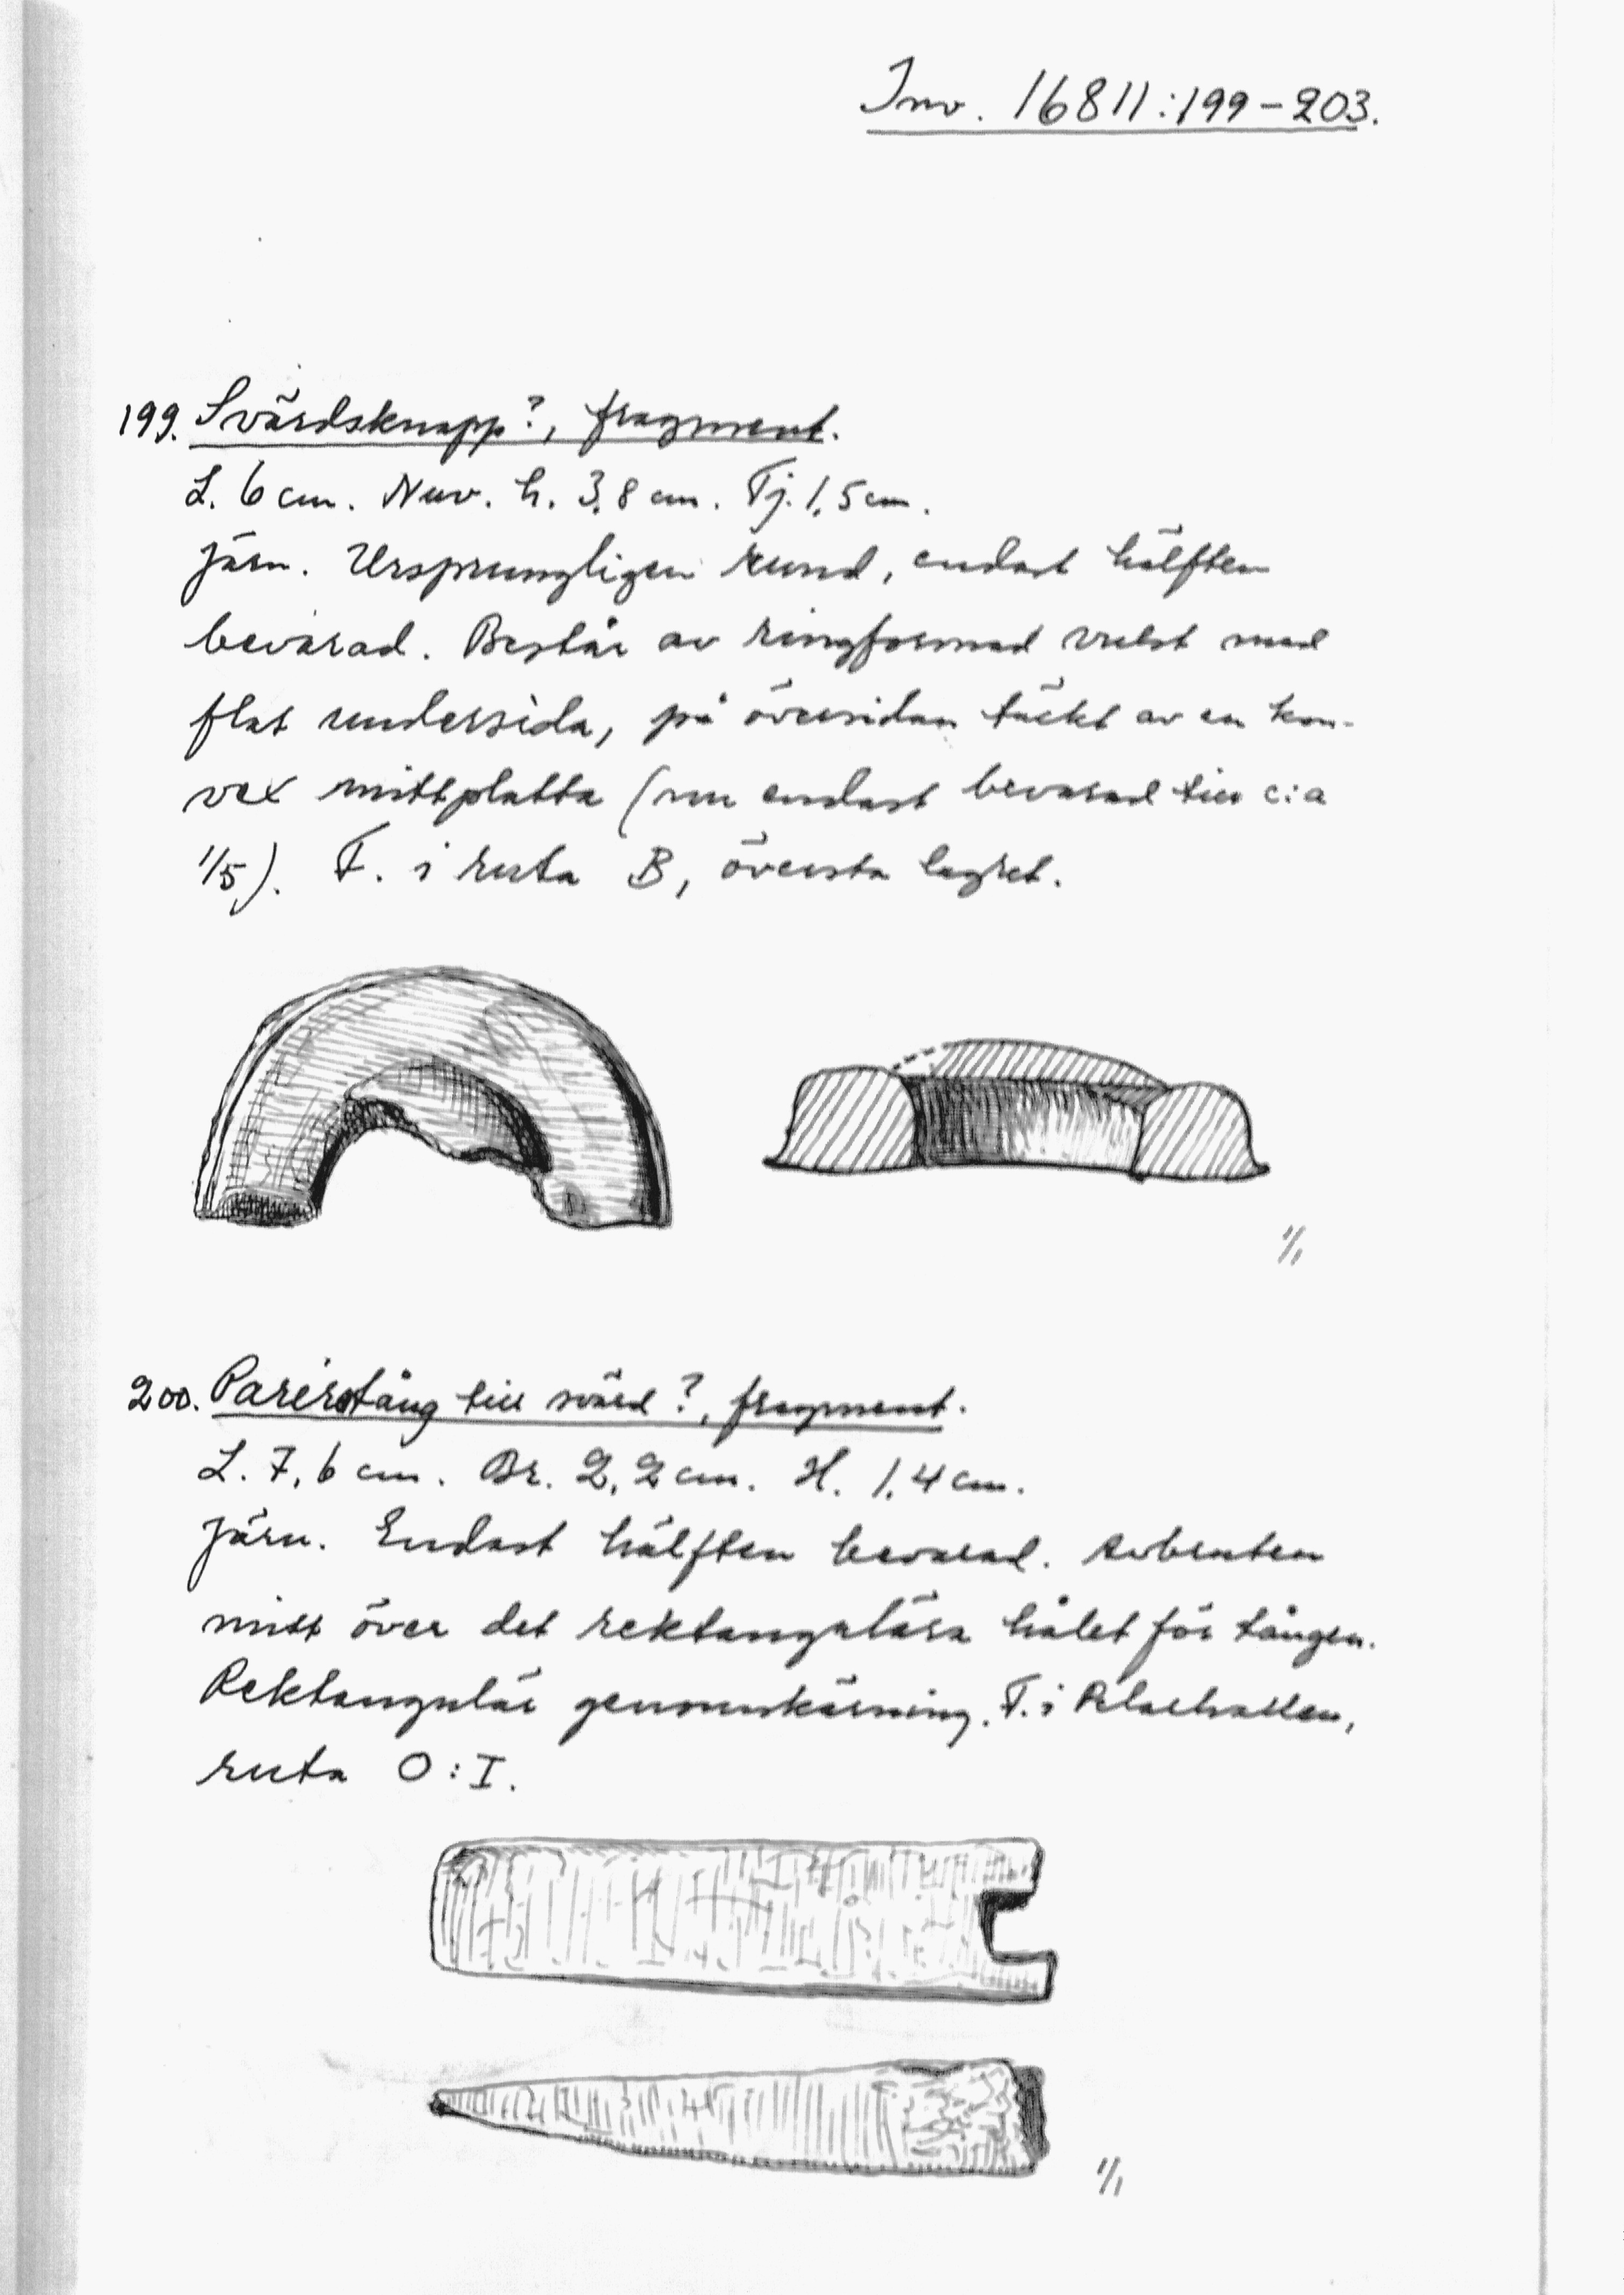 Inv. 16811:199–203.
199. Svärdsknapp?, fragment.
L. 6 cm. Nuv. h. 3,8 cm. Tj. 1,5 cm.
Järn. Ursprungligen rund, endast hälften
bevarad. Består av ringformad vulst med
flat undersida, på översidan täckt av en kon-
vex mittplatta (nu endast bevarad till c:a
1/5). F. i ruta B, översta lagret.
1/1
200. Parérstång till svärd?, fragment.
L. 7,6 cm. Br. 2,2 cm. H. 1,4 cm.
Järn. Endast hälften bevarad. Avbruten
mitt över det rektangulära hålet för tången.
Rektangulär genomskärning. F. i Pelarhallen,
ruta O:I.
1/1